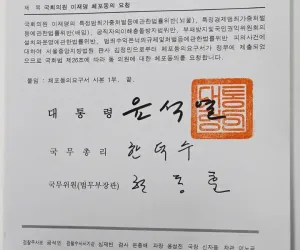 제 목 국회의원 이재명 체포동의 요청
국회의원 이재명의 특정범죄가중처벌등에관한법률위반(뇌물), 특정경제범죄가중처벌
등에관한법률위반(배임), 공직자의이해충돌방지법위반, 부패방지및국민권익위원회의
설치와운영에관한법률위반, 범죄수익은닉의규제및처벌등에관한법률위반 피의사건에
대하여 서울중앙지방법원 판사 체포동의요구서가 정부에 제출되었
으므로 국회법 제26조에 따라 동 의원에 대한 체포동의를 요청합니다.
붙임 : 체포동의요구서 사본 1부. 끝.
대 통 령 윤석열
국 무 총 리 한덕수
국무위원(법무부장관) 한동훈